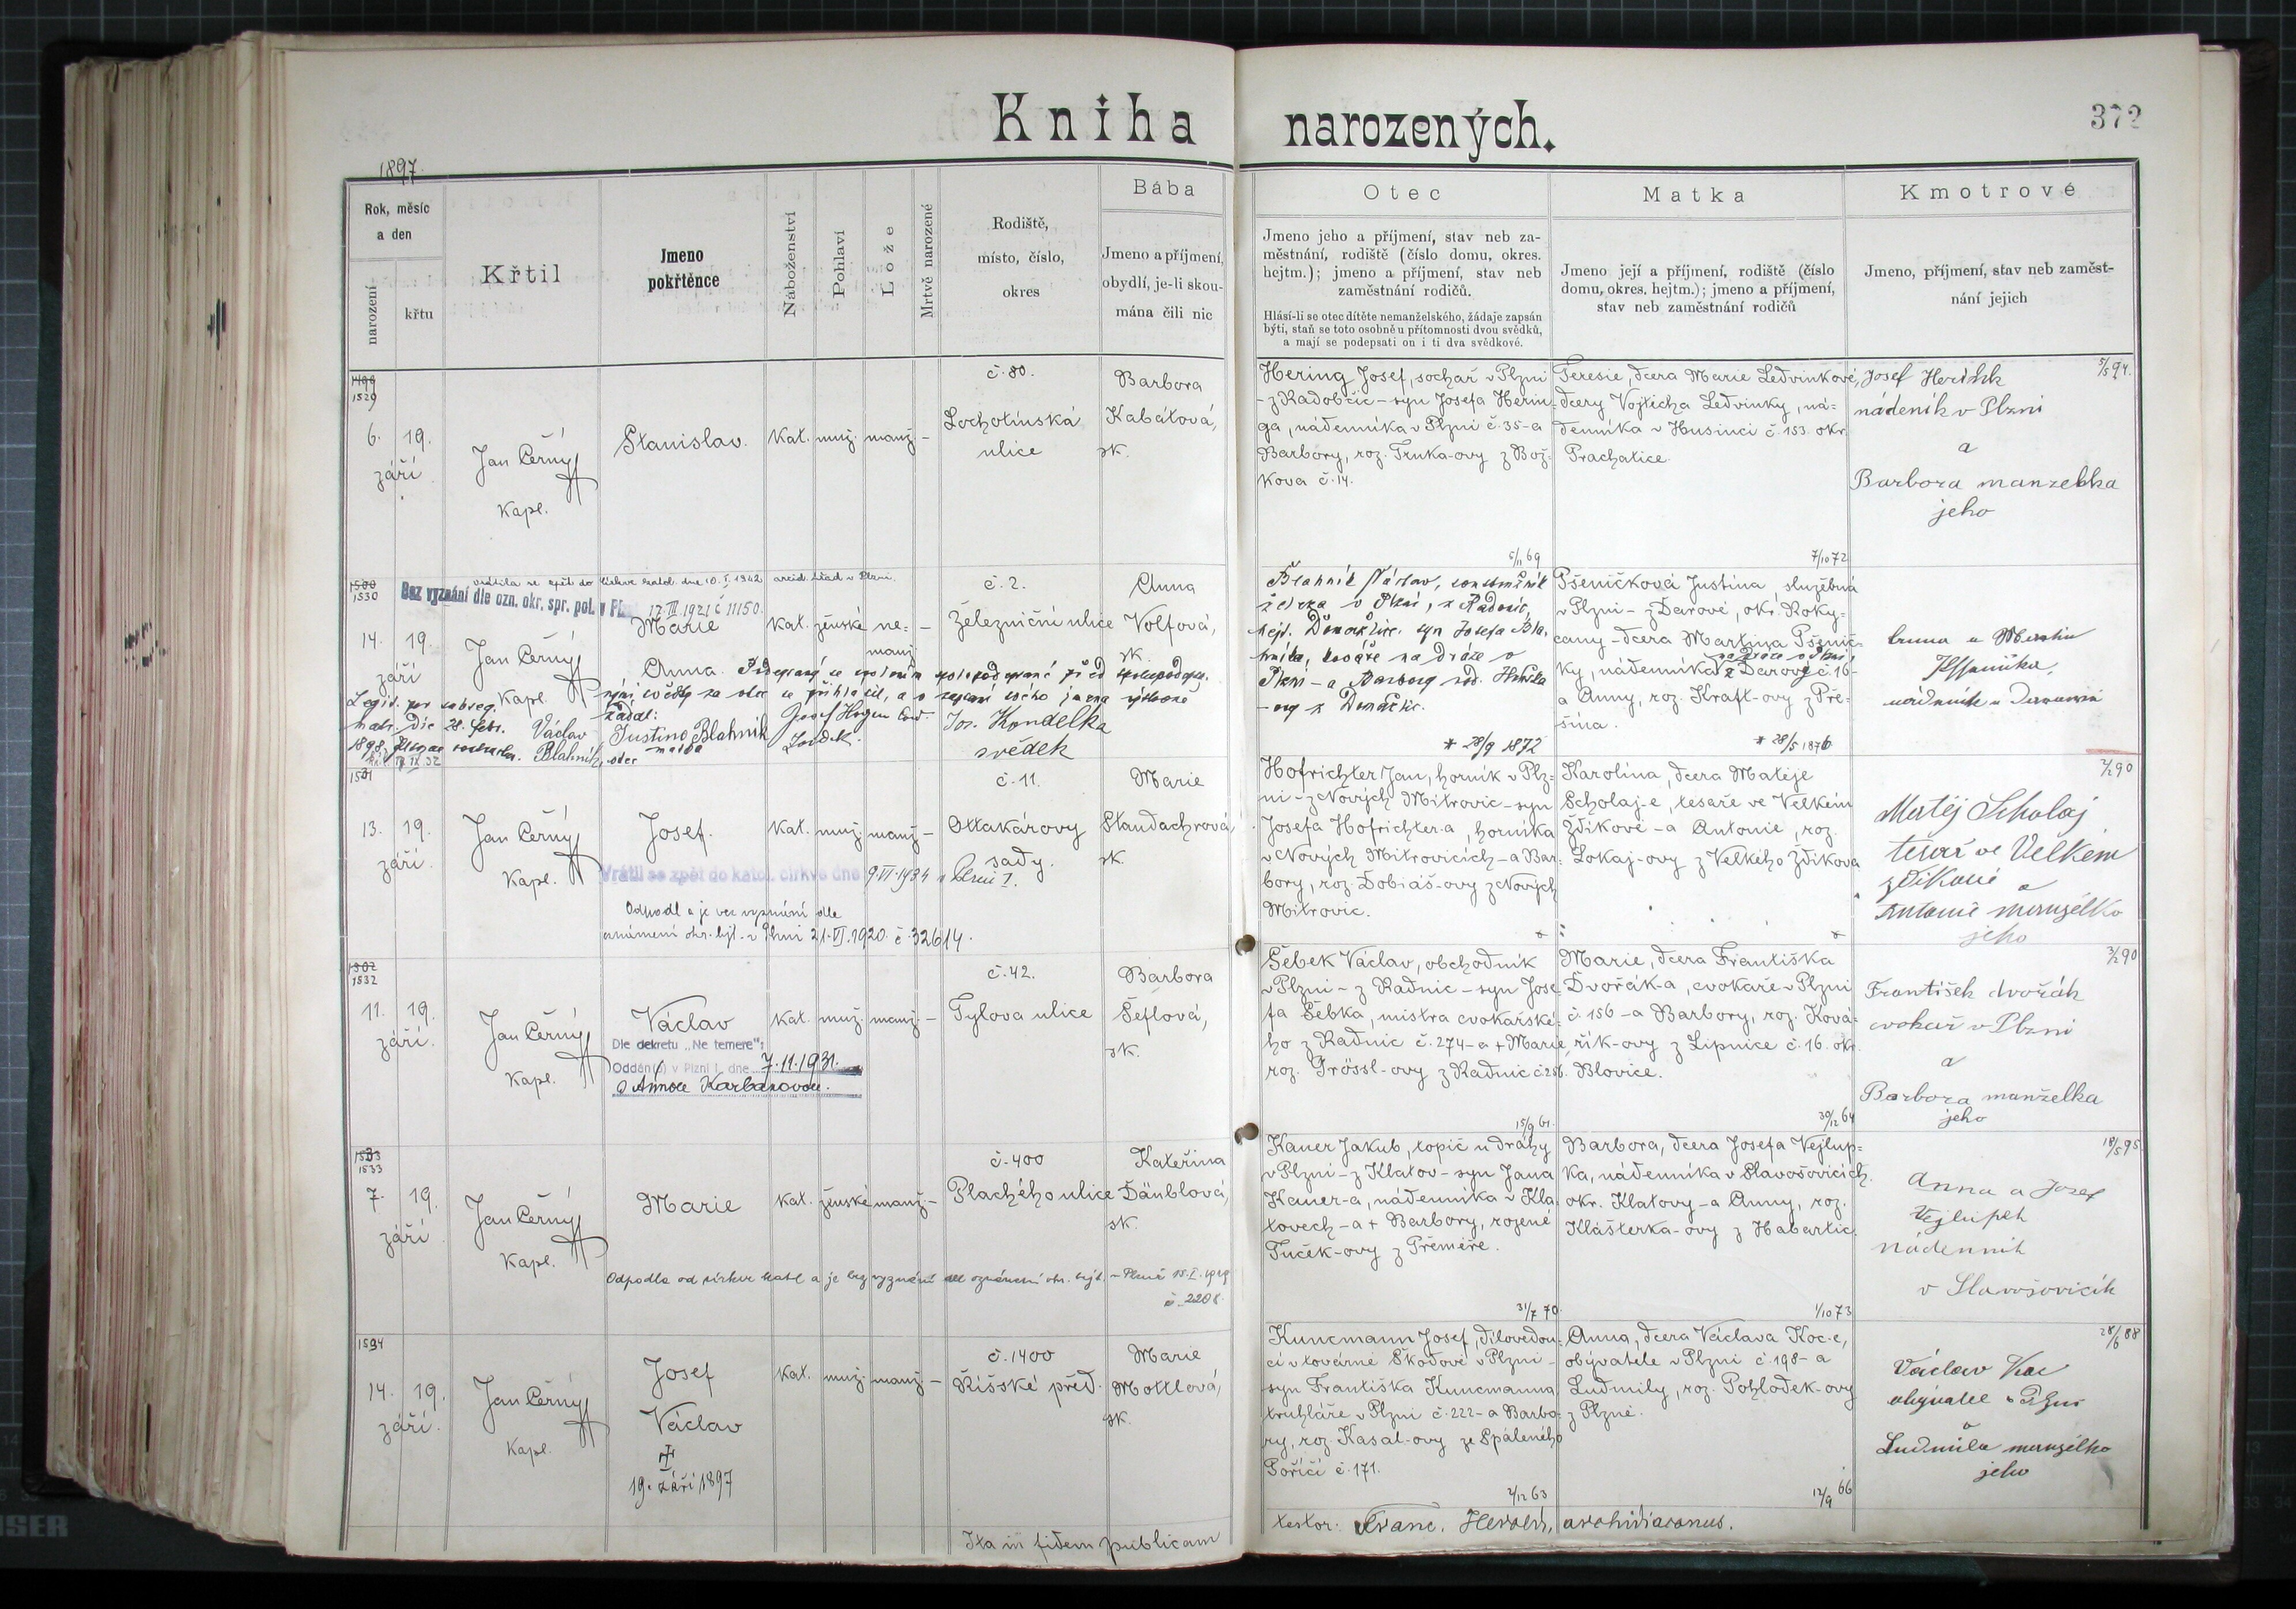 Kniha narozených.
372
1897.
Rok, měsíc
a den
narození
křtu
Křtil
Jmeno
pokřtěnce
Náboženství
Pohlaví
Lože
Mrtvě narozené
Rodiště,
místo, číslo,
okres
Bába
Jmeno a příjmení,
obydlí, je-li skou-
mána čili nic
Otec
Jmeno jeho a příjmení, stav neb za-
městnání, rodiště (číslo domu, okres.
hejtm.); jmeno a příjmení, stav neb
zaměstnání rodičů.
Hlásí-li se otec dítěte nemanželského, žádaje zapsán
býti, staň se toto osobně u přítomnosti dvou svědků,
a mají se podepsati on i ti dva svědkové.
Matka
Jmeno její a příjmení, rodiště (číslo
domu, okres. hejtm.); jmeno a příjmení,
stav neb zaměstnání rodičů
Kmotrové
Jmeno, příjmení, stav neb zaměst-
nání jejich
1529
6. 19.
září
Jan Černý
Kapl.
Stanislav.
Kat. muž. manž. –
č. 80.
Lochotínská
ulice
Barbora
Kabátová,
sk.
Hering Josef, sochař v Plzni
– z Radobčic – syn Josefa Herin-
ga, nádenníka v Plzni č. 35 – a
Barbory, roz. Trnka-ovy z Bož-
kova č. 14.
5/11 69
Teresie, dcera Marie Ledvinkové,
dcery Vojtěcha Ledvinky, ná-
denníka v Husinci č. 153. okr.
Prachatice.
7/10 72
5/5 94.
Josef Herink
nádeník v Plzni
a
Barbora manzelka
jeho
1500
1530
vrátila se zpět do církve katol. dne 10. I. 1942 arcid. úřad v Plzni.
Bez vyznání dle ozn. okr. spr. pol. v Pl
17. III. 1921 č 11150.
14. 19.
září
Jan Černý
Kapl.
Marie
Anna.
Kat. ženské ne-
manž.
–
č. 2.
Železniční ulice
Anna
Volfová,
sk.
žádal:
Legit. per subseq.
matr. die 28. febr.
1898
Václav
Blahník, otec
Justina Blahník
matka
Jos. Kondelka
svědek
Blahník Václav,
v Plzni, z Radonic,
syn Josefa Bla-
hníka, kováře na dráze v
Plzni – a Barbory rod.
* 28/9 1872
Pšeničková Justina, služebná
v Plzni – z Darové, okr. Roky-
cany – dcera Martina Pšenič-
ky, nádenníka z Darové č. 16 –
a Anny, roz. Kraft-ovy z Pře-
šína.
* 28/5 1876
1531
13. 19.
září.
Jan Černý
Kapl.
Josef.
Kat. muž. manž. –
č. 11.
Ottakárovy
sady.
Marie
Standachrová,
sk.
Vrátil se zpět do katol. církve dne 9. VI. 1934 v Plzni I.
Odpadl a je bez vyznání dle
oznámení okr. hejt. v Plzni 21. VI. 1920. č. 32614.
Hofrichter Jan, horník v Plz-
ni – z Nových Mitrovic – syn
Josefa Hofrichter-a, horníka
v Nových Mitrovicích – a Bar-
bory, roz. Tobiáš-ovy z Nových
Mitrovic.
Karolina, dcera Matěje
Scholaj-e, tesaře ve Velkém
Zdíkově – a Antonie, roz.
Lokaj-ovy z Velkého Zdíkova
7/2 90
Matěj Scholaj
tesař ve Velkém
zdíkově a
Antonie manzelka
jeho
1502
1532
11. 19.
září.
Jan Černý
Kapl.
Václav
Kat. muž. manž. –
č. 42.
Tylova ulice
Barbora
Šeflová,
sk.
Dle dekretu „Ne temere":
Oddán(a) v Plzni I. dne 7. 11. 1931.
s Annou Karbanovou.
Šebek Václav, obchodník
v Plzni – z Radnic – syn Jose-
fa Šebka, mistra cvokařské-
ho z Radnic č. 274 – a + Marie,
roz. Grössl-ovy z Radnic č. 256.
15/9 61.
Marie, dcera Františka
Dvořák-a, cvokaře v Plzni
č. 156 – a Barbory, roz. Ková-
řík-ovy z Lipnice č. 16. okr.
Blovice.
30/12 64
3/2 90
František dvořák
cvokař v Plzni
a
Barbora manželka
jeho
1533
7. 19.
září
Jan Černý
Kapl.
Marie
Kat. ženské manž. –
č. 400
Plachého ulice
Kateřina
Däublová,
sk.
Odpadla od církve katol. a je bez vyznání dle oznámení okr. hejt. – Plzně 15. I. 1919
č. 2208.
Kauer Jakub, topič u dráhy
v Plzni – z Klatov – syn Jana
Kauer-a, nádenníka v Kla-
tovech – a + Barbory, rozené
Tuček-ovy z Přeměře.
31/7 70.
Barbora, dcera Josefa Vejlup-
ka, nádenníka v Slavošovicích.
okr. Klatovy – a Anny, roz.
Klášterka-ovy z Habartic.
1/10 73
18/5 95
Anna a Josef
Vejlupek
nádenník
v Slavošovicích
1534
14. 19.
září.
Jan Černý
Kapl.
Josef
Václav
19. září 1897
Kat. muž. manž. –
č. 1400
Říšské před.
Marie
Mottlová,
sk.
Kuncmann Josef, dílovedou-
cí v továrně Škodově v Plzni –
syn Františka Kuncmanna,
truhláře v Plzni č. 222 – a Barbo-
ry, roz. Kasal-ovy ze Spáleného
Poříčí č. 171.
2/12 63
Anna, dcera Václava Koc-e,
obývatele v Plzni č. 198 – a
Ludmily, roz. Pohlodek-ovy
z Plzně.
12/9 66
28/6 88
Václav Koc
obývatel v Plzni
a
Ludmila manzelka
jeho
Ita in fidem publicam
testor: Franc. Herold, archidiaconus.